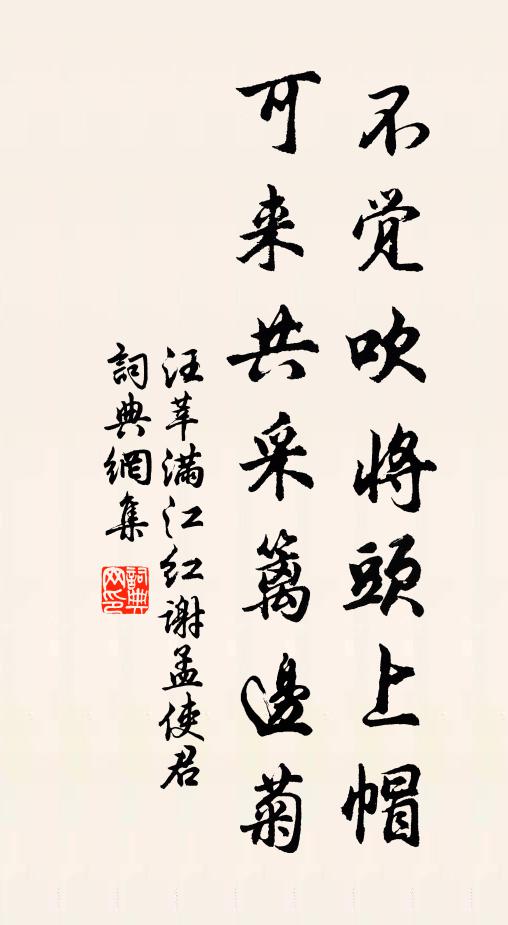 不觉吹将頭上帽
可来共采籬邊菊
汪莘满江红谢孟使君
詞典網集
詞典網印